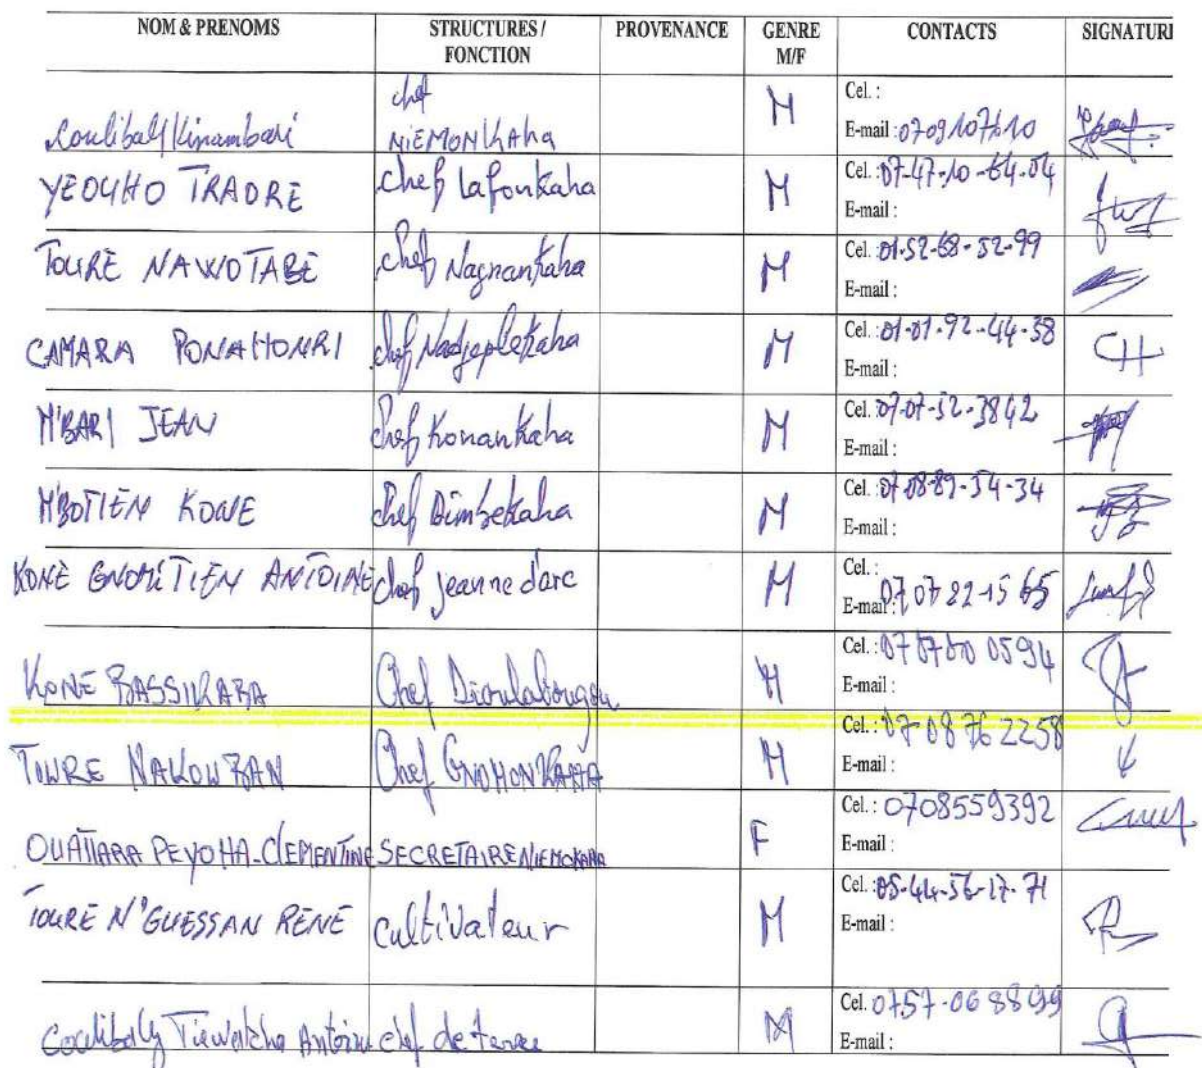 NOM & PRENOMS STRUCTURES / FONCTION PROVENANCE GENRE M/F CONTACTS SIGNATURE
Coulibaly Kinambari chef NIEMONKAHA M Cel. : E-mail : 0709107610
YEOUHO TRAORE chef Lafonkaha M Cel. : 07-47-10-64-04 E-mail :
TOURE NAWOTABE chef Nagnankaha M Cel. : 01-52-68-52-99 E-mail :
CAMARA PONAHONRI chef Nadjeplekaha M Cel. : 01-01-92-44-38 E-mail :
M'BARI JEAN chef Konankaha M Cel. 07-07-52-3842 E-mail :
M'BOTIEN KONE chef Bimbekaha M Cel. 07-08-89-54-34 E-mail :
KONE GNOMITIEN ANTOINE chef jeanne d'arc M Cel. : E-mail : 07 07 82-15 65
KONE BASSIKABA Chef Dioulabougou M Cel. : 07 07 80 0594 E-mail :
TOURE NAKOWBAN Chef GNOMONKAHA M Cel. : 07 08 76 2258 E-mail :
OUATTARA PEYOHA-CLEMENTINE SECRETAIRE NIEMOKAHA F Cel. : 0708559392 E-mail :
TOURE N'GUESSAN RENE cultivateur M Cel. : 05-44-56-17-71 E-mail :
Coulibaly Antoine chef de terre M Cel. 0757-06 8899 E-mail :